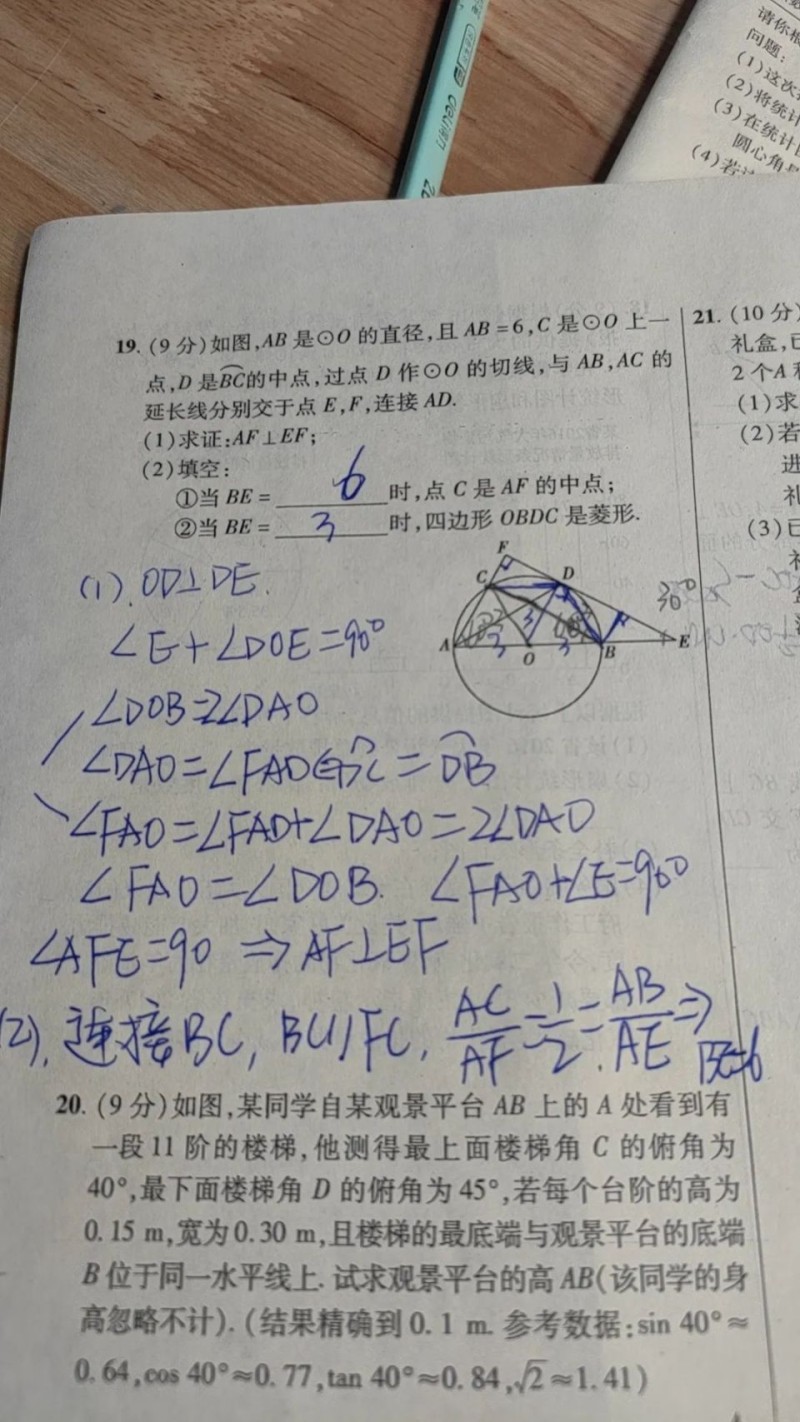 请你根
问题:
(1)这次
(2)将统计
(3)在统计
圆心角是
(4)若
deli
19. (9分)如图,AB是⊙O的直径,且AB=6,C是⊙O上一
点,D是BC的中点,过点D作⊙O的切线,与AB,AC的
延长线分别交于点E,F,连接AD.
(1)求证:AF⊥EF;
(2)填空:
①当BE= 6 时,点C是AF的中点;
②当BE= 3 时,四边形OBDC是菱形.
F
C
D
A
O
B
E
3
3
3
30°
(1).OD⊥DE.
∠E+∠DOE=90°
∠DOB=2∠DAO
∠DAO=∠FAD⇐DC=DB
∠FAO=∠FAD+∠DAO=2∠DAO
∠FAO=∠DOB. ∠FAO+∠E=90°
∠AFE=90 ⇒AF⊥EF
(2),连接BC, BC//FC, AC/AF=1/2=AB/AE⇒
BE=6
20. (9分)如图,某同学自某观景平台AB上的A处看到有
一段11阶的楼梯,他测得最上面楼梯角C的俯角为
40°,最下面楼梯角D的俯角为45°,若每个台阶的高为
0.15 m,宽为0.30 m,且楼梯的最底端与观景平台的底端
B位于同一水平线上.试求观景平台的高AB(该同学的身
高忽略不计).(结果精确到0.1 m.参考数据:sin 40°≈
0.64,cos 40°≈0.77,tan 40°≈0.84,√2≈1.41)
21. (10分)
礼盒,已
2个A和
(1)求
(2)若
进
礼
(3)已